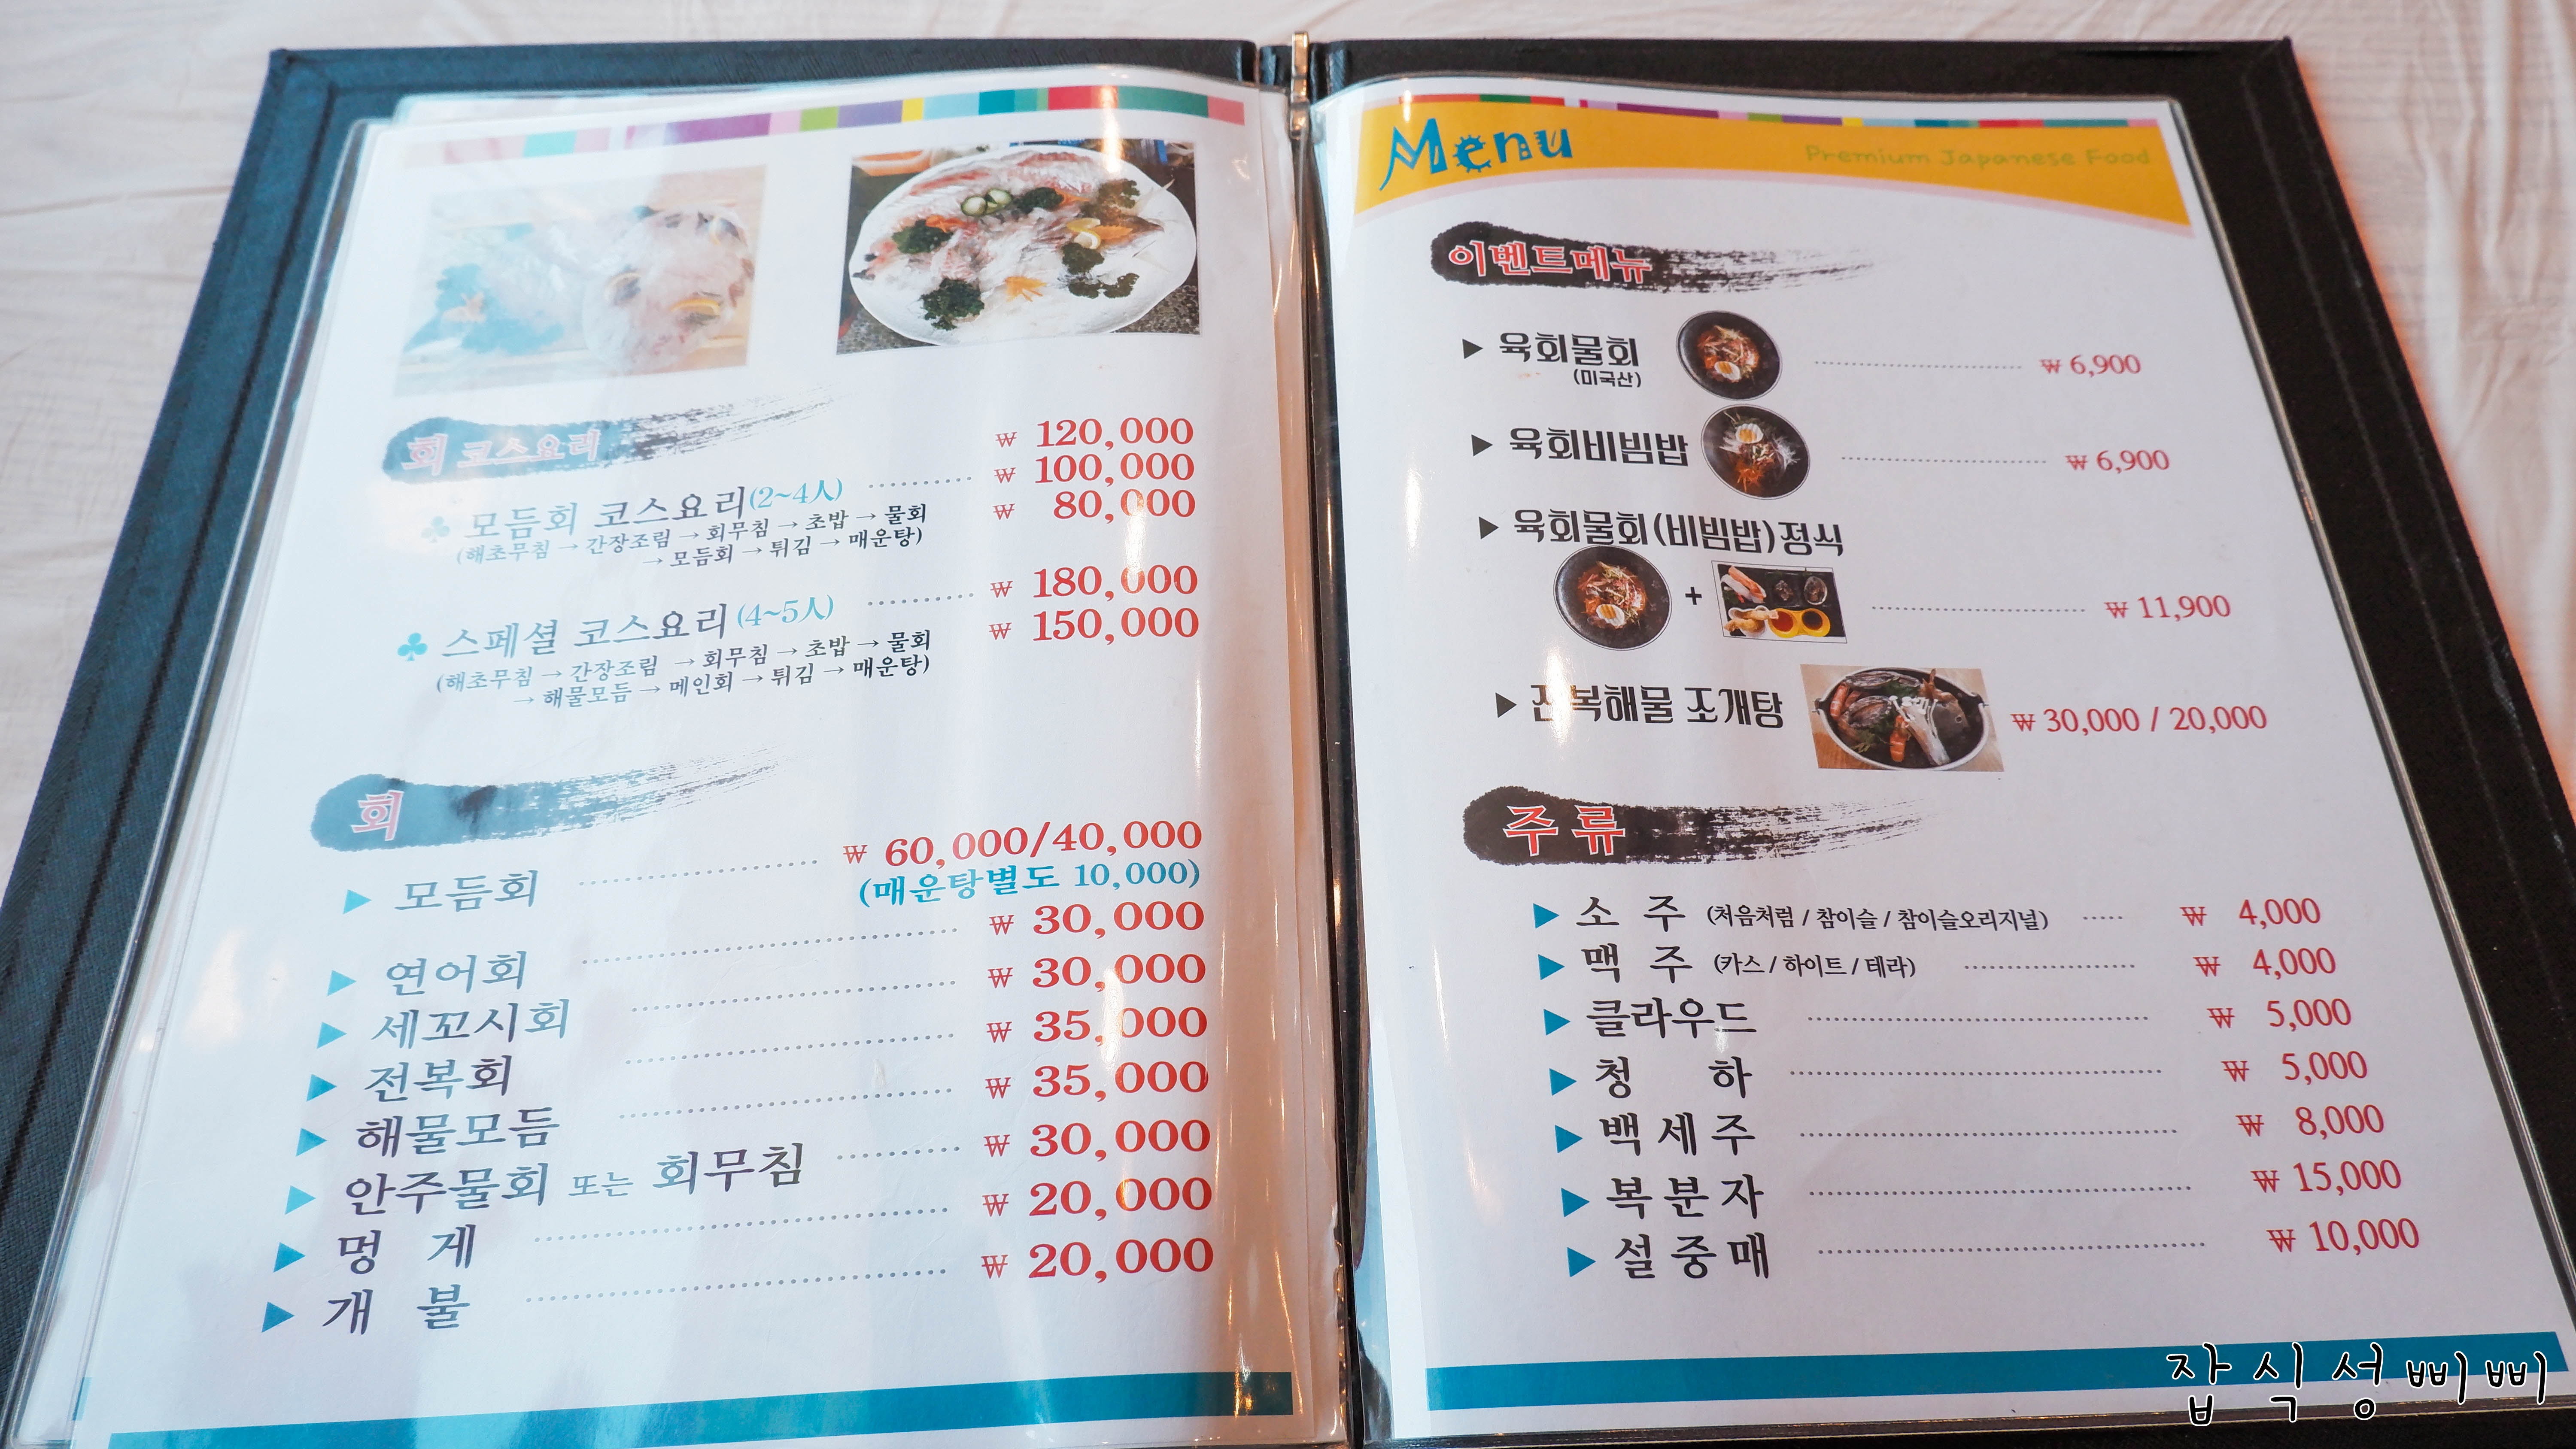 회 코스요리
₩ 120,000
♣ 모듬회 코스요리(2~4人) ₩ 100,000
₩ 80,000
(해초무침 → 간장조림 → 회무침 → 초밥 → 물회
→ 모듬회 → 튀김 → 매운탕)
♣ 스페셜 코스요리 (4~5人) ₩ 180,000
₩ 150,000
(해초무침 → 간장조림 → 회무침 → 초밥 → 물회
→ 해물모듬 → 메인회 → 튀김 → 매운탕)
회
▶ 모듬회 ₩ 60,000/40,000
(매운탕별도 10,000)
▶ 연어회 ₩ 30,000
▶ 세꼬시회 ₩ 30,000
▶ 전복회 ₩ 35,000
▶ 해물모듬 ₩ 35,000
▶ 안주물회 또는 회무침 ₩ 30,000
▶ 멍 게 ₩ 20,000
▶ 개 불 ₩ 20,000
Menu
Premium Japanese Food
이벤트메뉴
▶ 육회물회 ₩ 6,900
(미국산)
▶ 육회비빔밥 ₩ 6,900
▶ 육회물회(비빔밥)정식
+ ₩ 11,900
▶ 전복해물 조개탕 ₩ 30,000 / 20,000
주 류
▶ 소 주 (처음처럼 / 참이슬 / 참이슬오리지널) ₩ 4,000
▶ 맥 주 (카스 / 하이트 / 테라) ₩ 4,000
▶ 클라우드 ₩ 5,000
▶ 청 하 ₩ 5,000
▶ 백 세 주 ₩ 8,000
▶ 복 분 자 ₩ 15,000
▶ 설 중 매 ₩ 10,000
잡식성삐삐